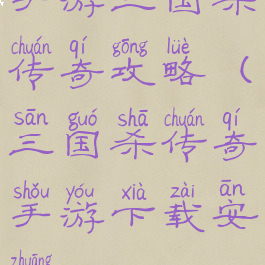 手游三国杀
chuán qí gōng lüè
传奇攻略（
sān guó shā chuán qí
三国杀传奇
shǒu yóu xià zài ān
手游下载安
zhuāng